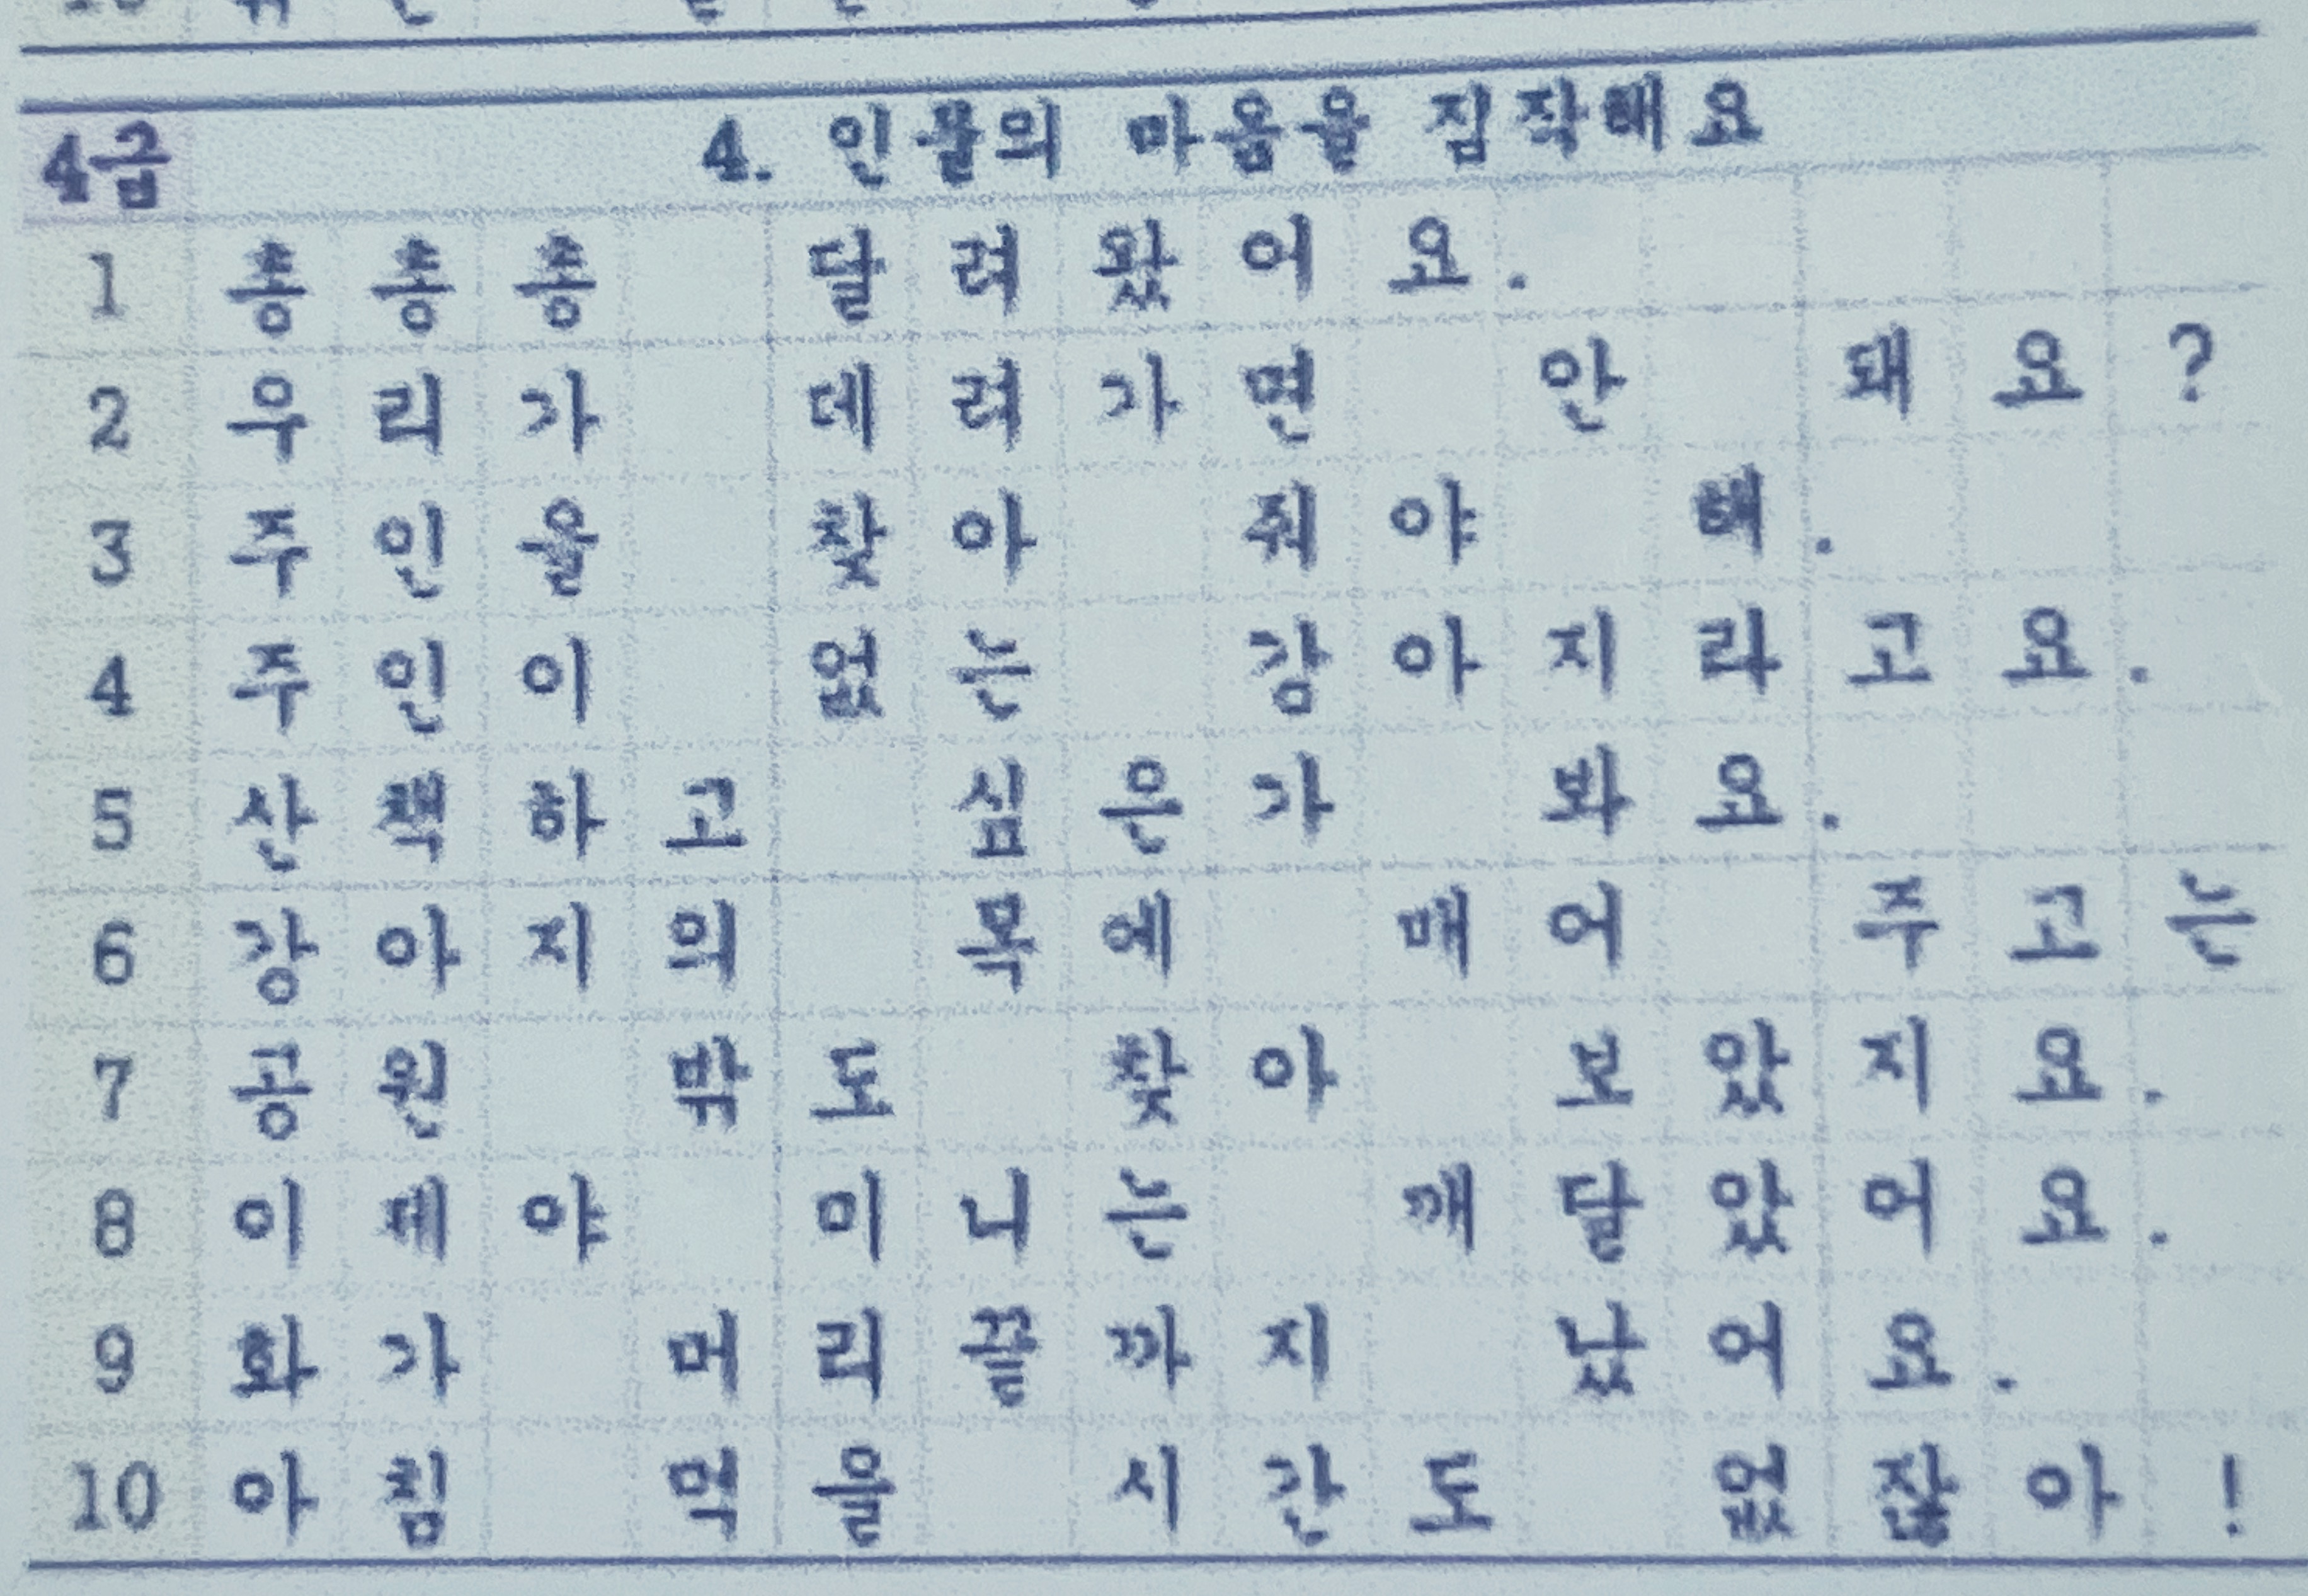 4급 4. 인물의 마음을 짐작해요
1 총총총 달려왔어요.
2 우리가 데려가면 안 돼요?
3 주인을 찾아 줘야 해.
4 주인이 없는 강아지라고요.
5 산책하고 싶은가 봐요.
6 강아지의 목에 매어 주고는
7 공원 밖도 찾아 보았지요.
8 이제야 미니는 깨달았어요.
9 화가 머리끝까지 났어요.
10 아침 먹을 시간도 없잖아!